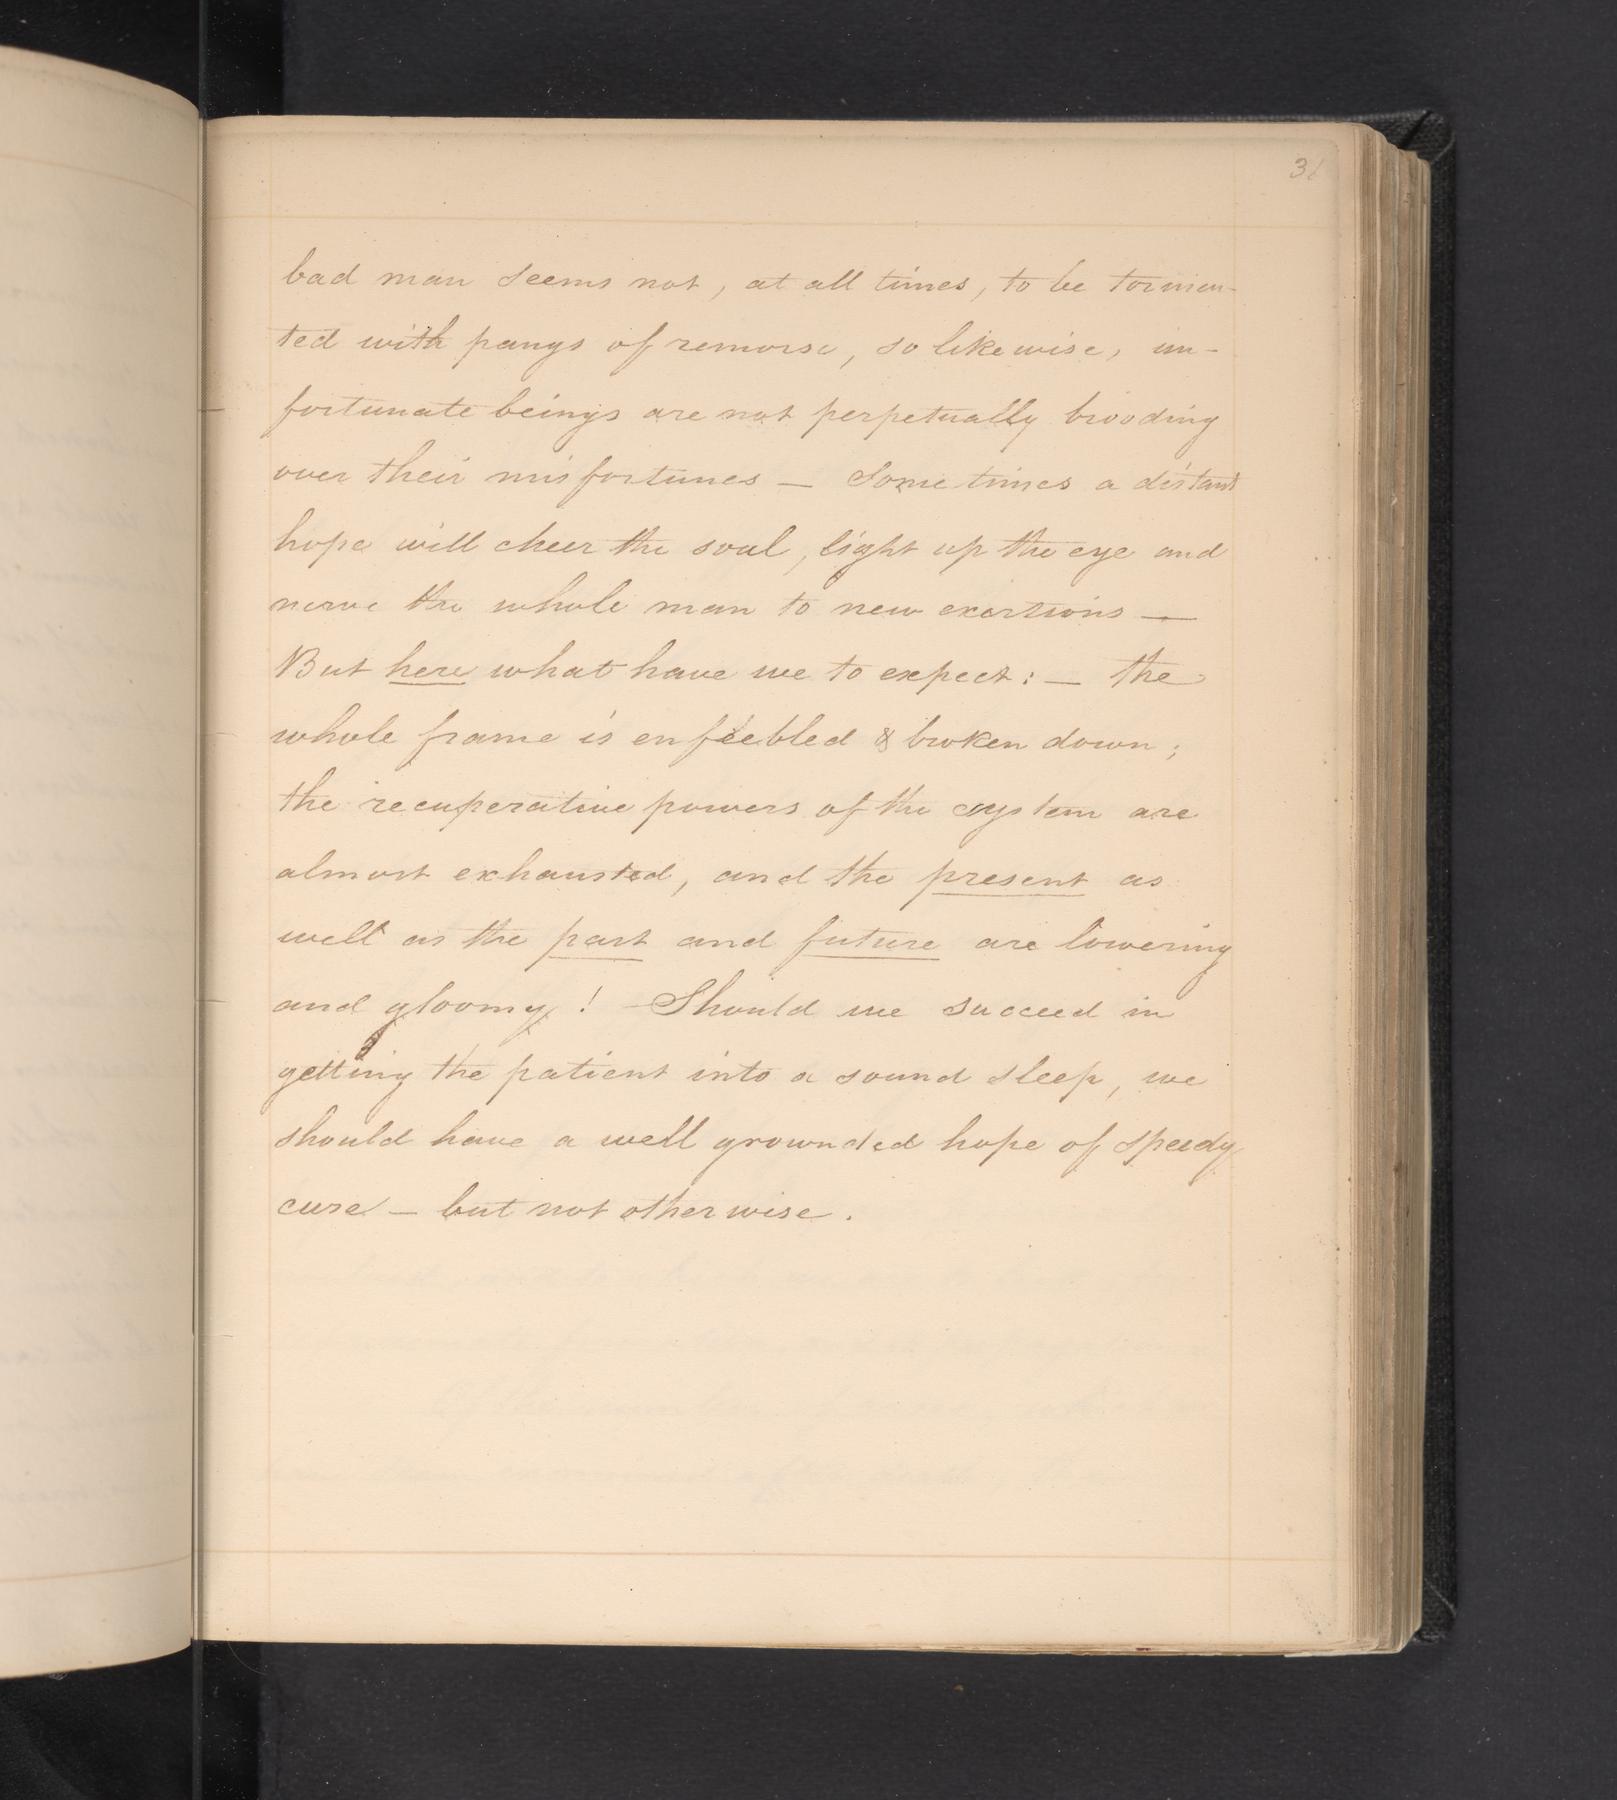 bad man seems not, at all times, to be tormen-
ted with pangs of remorse, so likewise, un-
fortunate beings are not perpetually brooding
over their misfortunes — Sometimes a distant
hope will cheer the soul, light up the eye and
nerve the whole man to new exertions —
But here what have we to expect: — the
whole frame is enfeebled & broken down;
the recuperative powers of the system are
almost exhausted, and the present as
well as the past and future are lowering
and gloomy! Should we succeed in
getting the patient into a sound sleep, we
should have a well grounded hope of speedy
cure — but not otherwise.